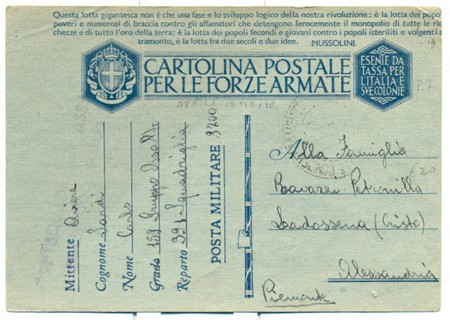 Questa lotta gigantesca non è che una fase e lo sviluppo logico della nostra rivoluzione: è la lotta dei popoli
poveri e numerosi di braccia contro gli affamatori che detengono ferocemente il monopolio di tutte le ric
chezze e di tutto l'oro della terra: è la lotta dei popoli fecondi e giovani contro i popoli isteriliti e volgenti a
tramonto, è la lotta fra due secoli e due idee.
MUSSOLINI
CARTOLINA POSTALE
PER LE FORZE ARMATE
ESENTE DA
TASSA PER
L'ITALIA E
SVE COLONIE
P.7
Mittente
Cognome
Nome Carlo
Grado 159 Gruppo Assalto
Reparto 391ª Squadriglia
POSTA MILITARE 3200
Alla Famiglia
Ravazzi Petronilla
(Cristo)
Alessandria
Piemonte